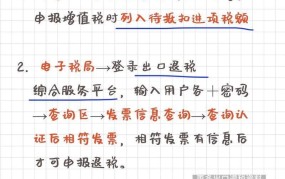 申报增值税时列入待抵扣进项税额
2. 电子税局→登录出口退税
综合服务平台，输入用户名+密码
→查询区→发票信息查询→查询认
证后相符发票，相符发票有信息后
才可申报退税。